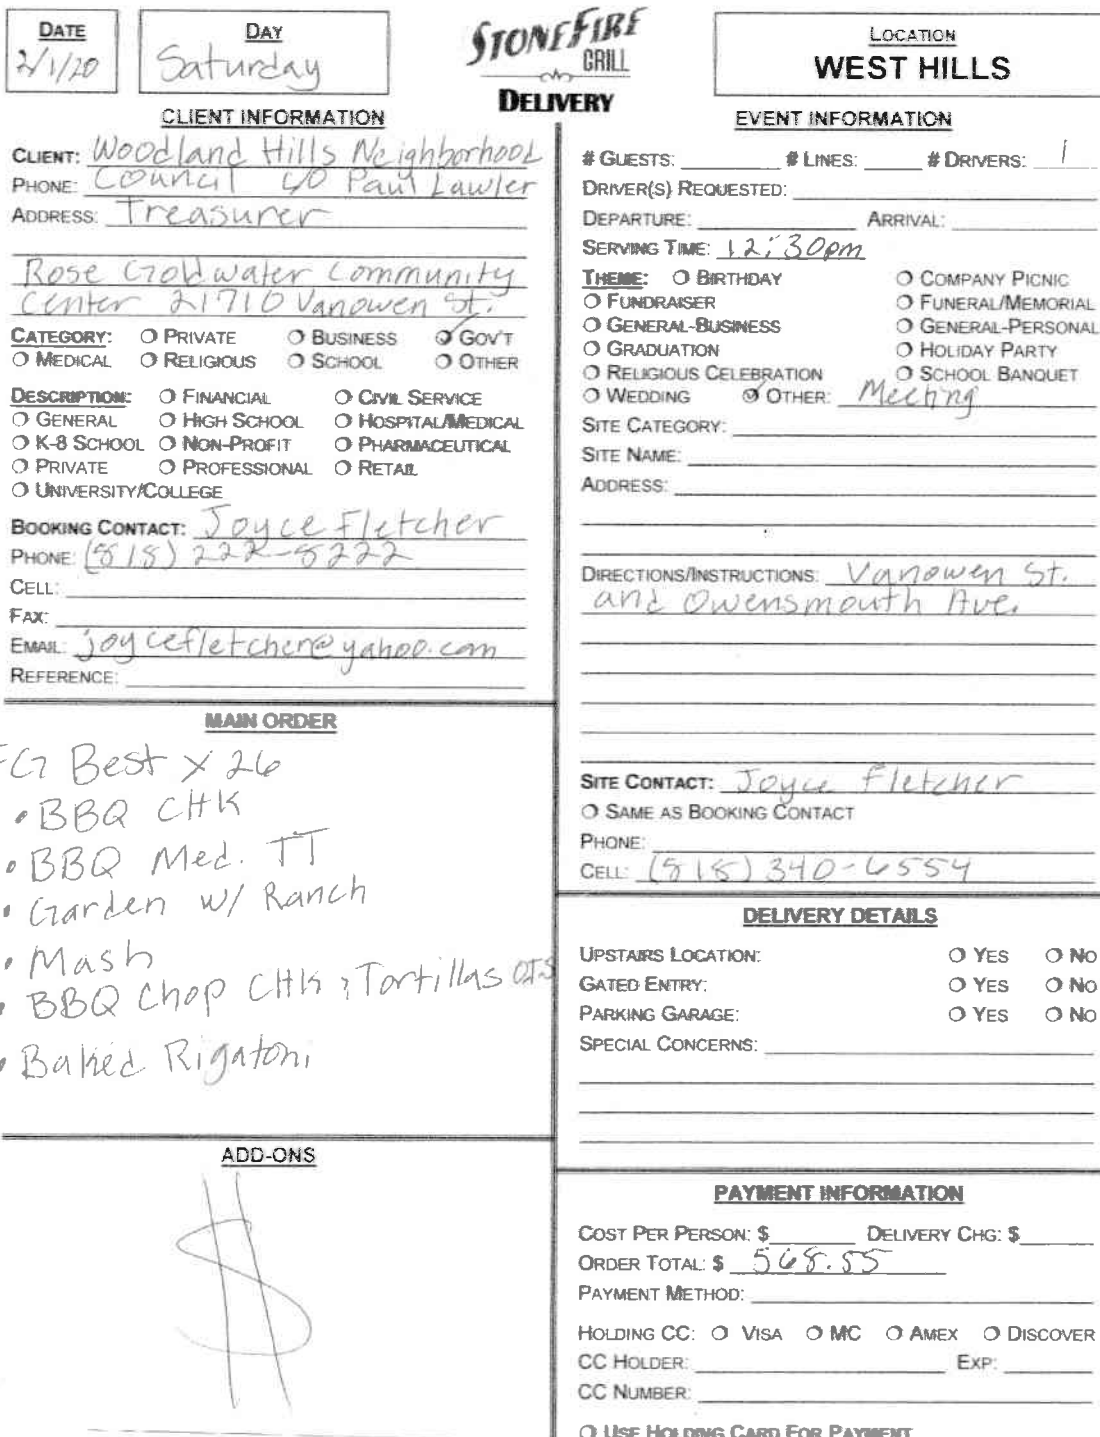 DATE
2/1/20
DAY
Saturday
STONEFIRE
GRILL
DELIVERY
LOCATION
WEST HILLS
CLIENT INFORMATION
CLIENT: Woodland Hills Neighborhood
PHONE: Council c/o Paul Lawler
ADDRESS: Treasurer
Rose Goldwater Community
Center 21710 Vanowen St.
CATEGORY: O PRIVATE O BUSINESS O GOV'T
O MEDICAL O RELIGIOUS O SCHOOL O OTHER
DESCRIPTION: O FINANCIAL O CIVIL SERVICE
O GENERAL O HIGH SCHOOL O HOSPITAL/MEDICAL
O K-8 SCHOOL O NON-PROFIT O PHARMACEUTICAL
O PRIVATE O PROFESSIONAL O RETAIL
O UNIVERSITY/COLLEGE
BOOKING CONTACT: Joyce Fletcher
PHONE: (818) 222-8222
CELL:
FAX:
EMAIL: joycefletcher@yahoo.com
REFERENCE:
EVENT INFORMATION
# GUESTS: # LINES: # DRIVERS: 1
DRIVER(S) REQUESTED:
DEPARTURE: ARRIVAL:
SERVING TIME: 12:30pm
THEME: O BIRTHDAY O COMPANY PICNIC
O FUNDRAISER O FUNERAL/MEMORIAL
O GENERAL-BUSINESS O GENERAL-PERSONAL
O GRADUATION O HOLIDAY PARTY
O RELIGIOUS CELEBRATION O SCHOOL BANQUET
O WEDDING O OTHER: Meeting
SITE CATEGORY:
SITE NAME:
ADDRESS:
DIRECTIONS/INSTRUCTIONS: Vanowen St.
and Owensmouth Ave.
SITE CONTACT: Joyce Fletcher
O SAME AS BOOKING CONTACT
PHONE:
CELL: (818) 340-6554
MAIN ORDER
FG Best x 26
• BBQ CHK
• BBQ Med. TT
• Garden w/ Ranch
• Mash
• BBQ Chop CHK ; Tortillas OTS
• Baked Rigatoni
DELIVERY DETAILS
UPSTAIRS LOCATION: O YES O NO
GATED ENTRY: O YES O NO
PARKING GARAGE: O YES O NO
SPECIAL CONCERNS:
ADD-ONS
$
PAYMENT INFORMATION
COST PER PERSON: $ DELIVERY CHG: $
ORDER TOTAL: $ 568.55
PAYMENT METHOD:
HOLDING CC: O VISA O MC O AMEX O DISCOVER
CC HOLDER: EXP:
CC NUMBER:
O USE HOLDING CARD FOR PAYMENT